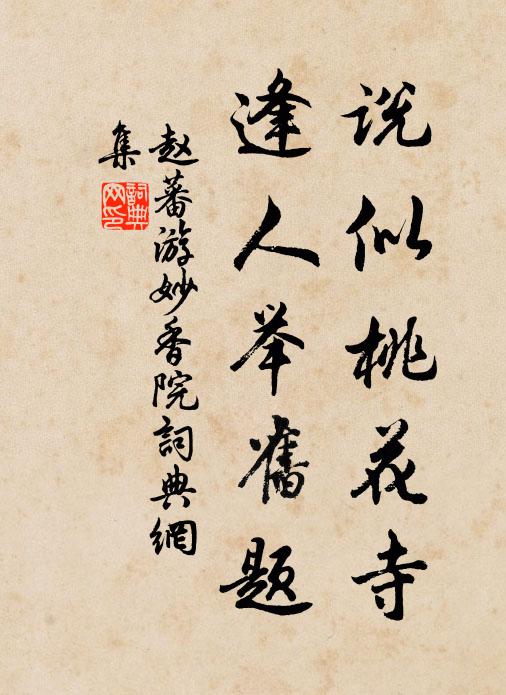 说似桃花寺
逢人举旧题
赵蕃游妙香院詞典網
集
詞典网印